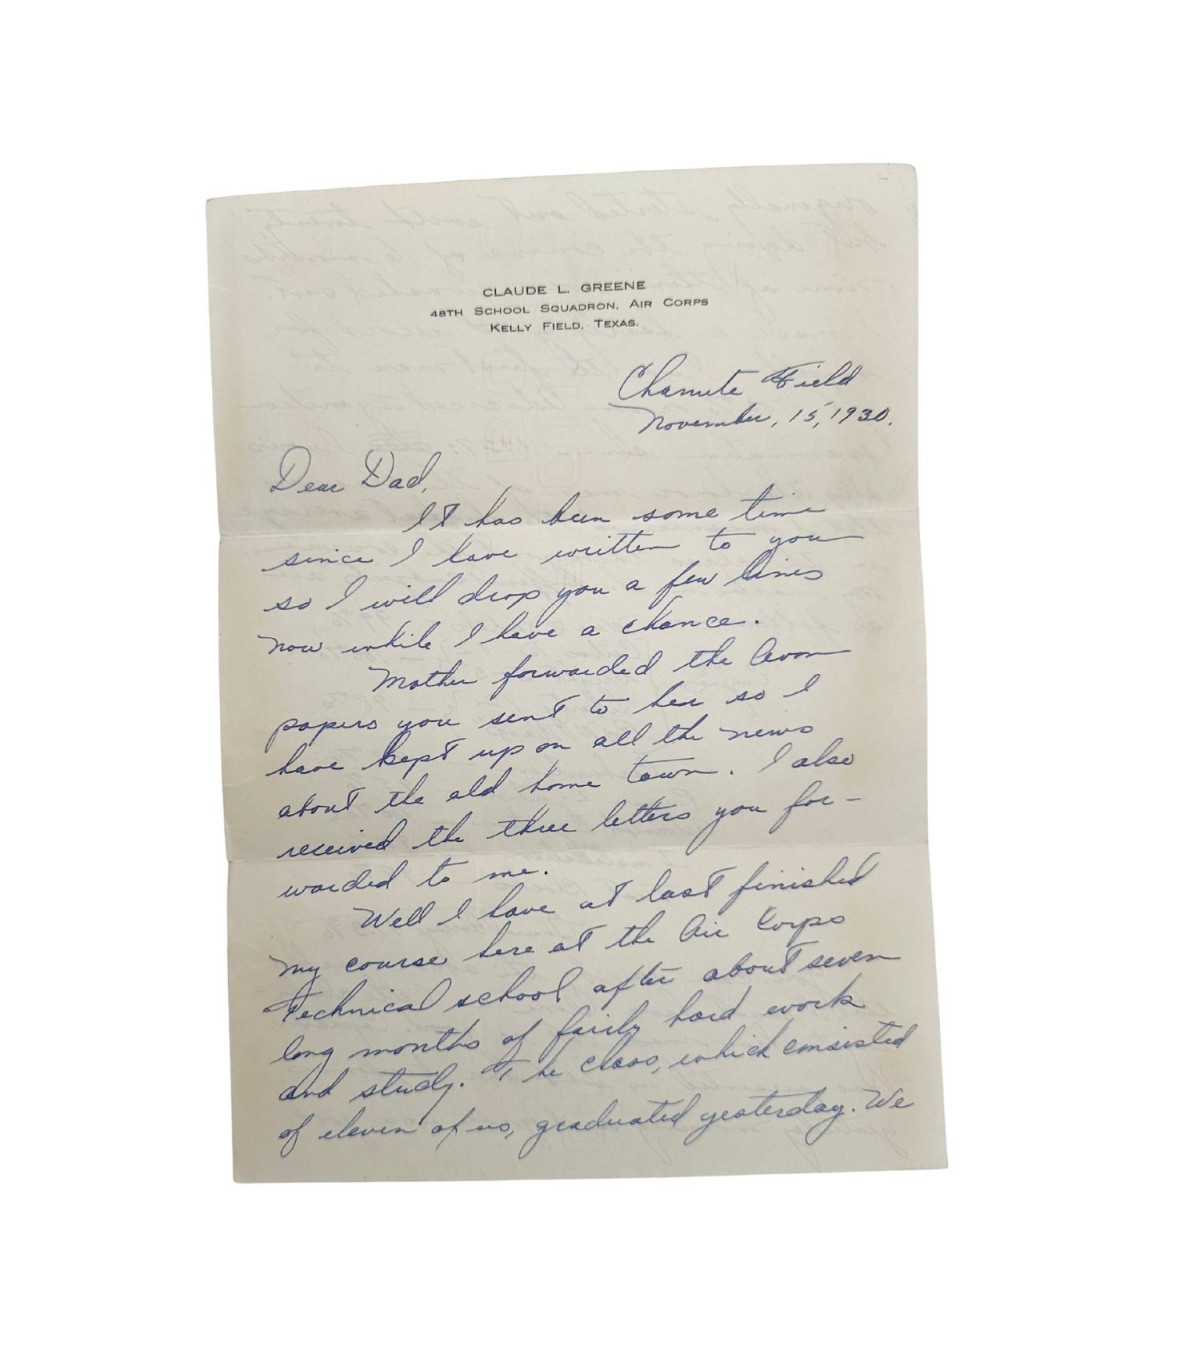 CLAUDE L. GREENE
48TH SCHOOL SQUADRON, AIR CORPS
KELLY FIELD, TEXAS.
Chanute Field
November, 15, 1930.
Dear Dad,
It has been some time
since I have written to you
so I will drop you a few lines
now while I have a chance.
Mother forwarded the Avon
papers you sent to her so I
have kept up on all the news
about the old home town. I also
received the three letters you for-
warded to me.
Well I have at last finished
my course here at the Air Corps
Technical school after about seven
long months of fairly hard work
and study. The class, which consisted
of eleven of us, graduated yesterday. We